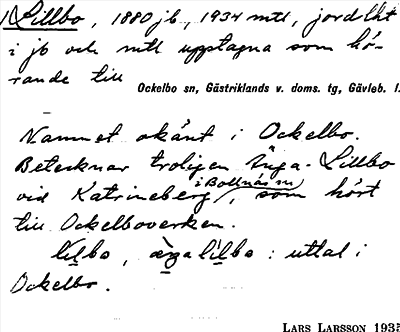 1) Lillbo, 1880 jb, 1934 mtl, jordlht
i jb och mtl upptagna som hö-
rande till
Ockelbo sn, Gästriklands v. doms. tg, Gävleb. l.
Namnet okänt i Ockelbo.
Betecknar troligen Änga-Lillbo
i Bollnäs sn
vid Katrineberg, som hört
till Ockelboverken.
lilbo, æŋalilbo : uttal i
Ockelbo.
LARS LARSSON 1935